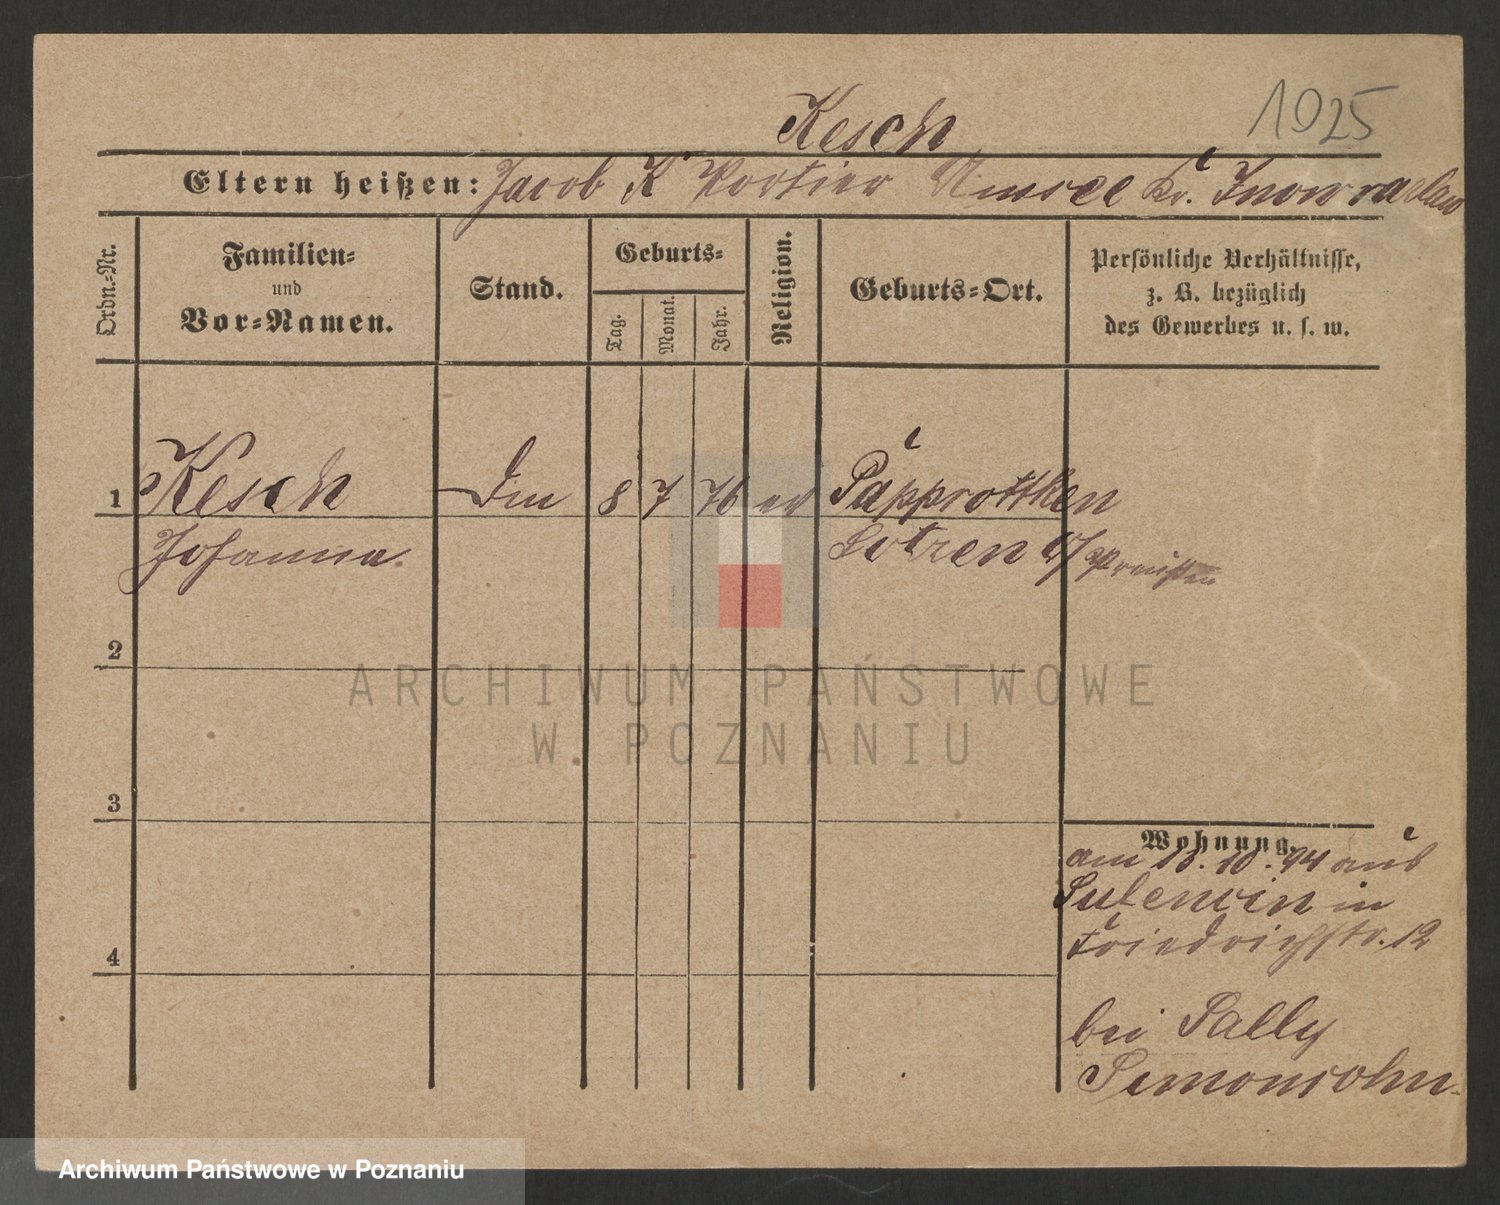 1025
Kesch
Eltern heißen: Jacob K Portier Kr. Inowraclaw
Ordn.-Nr.
Familien-
und
Vor-Namen.
Stand.
Geburts-
Tag.
Monat.
Jahr.
Religion.
Geburts-Ort.
Persönliche Verhältnisse,
z. B. bezüglich
des Gewerbes u. s. w.
1 Kesch 8 7 76 ev Papprottken
Johanna. Lötzen O/Preußen
2
3
4
Wohnung.
am 13.10.94 aus
in
Friedrichstr. 12
bei Sally
Simonsohn.
ARCHIWUM PAŃSTWOWE
W POZNANIU
Archiwum Państwowe w Poznaniu